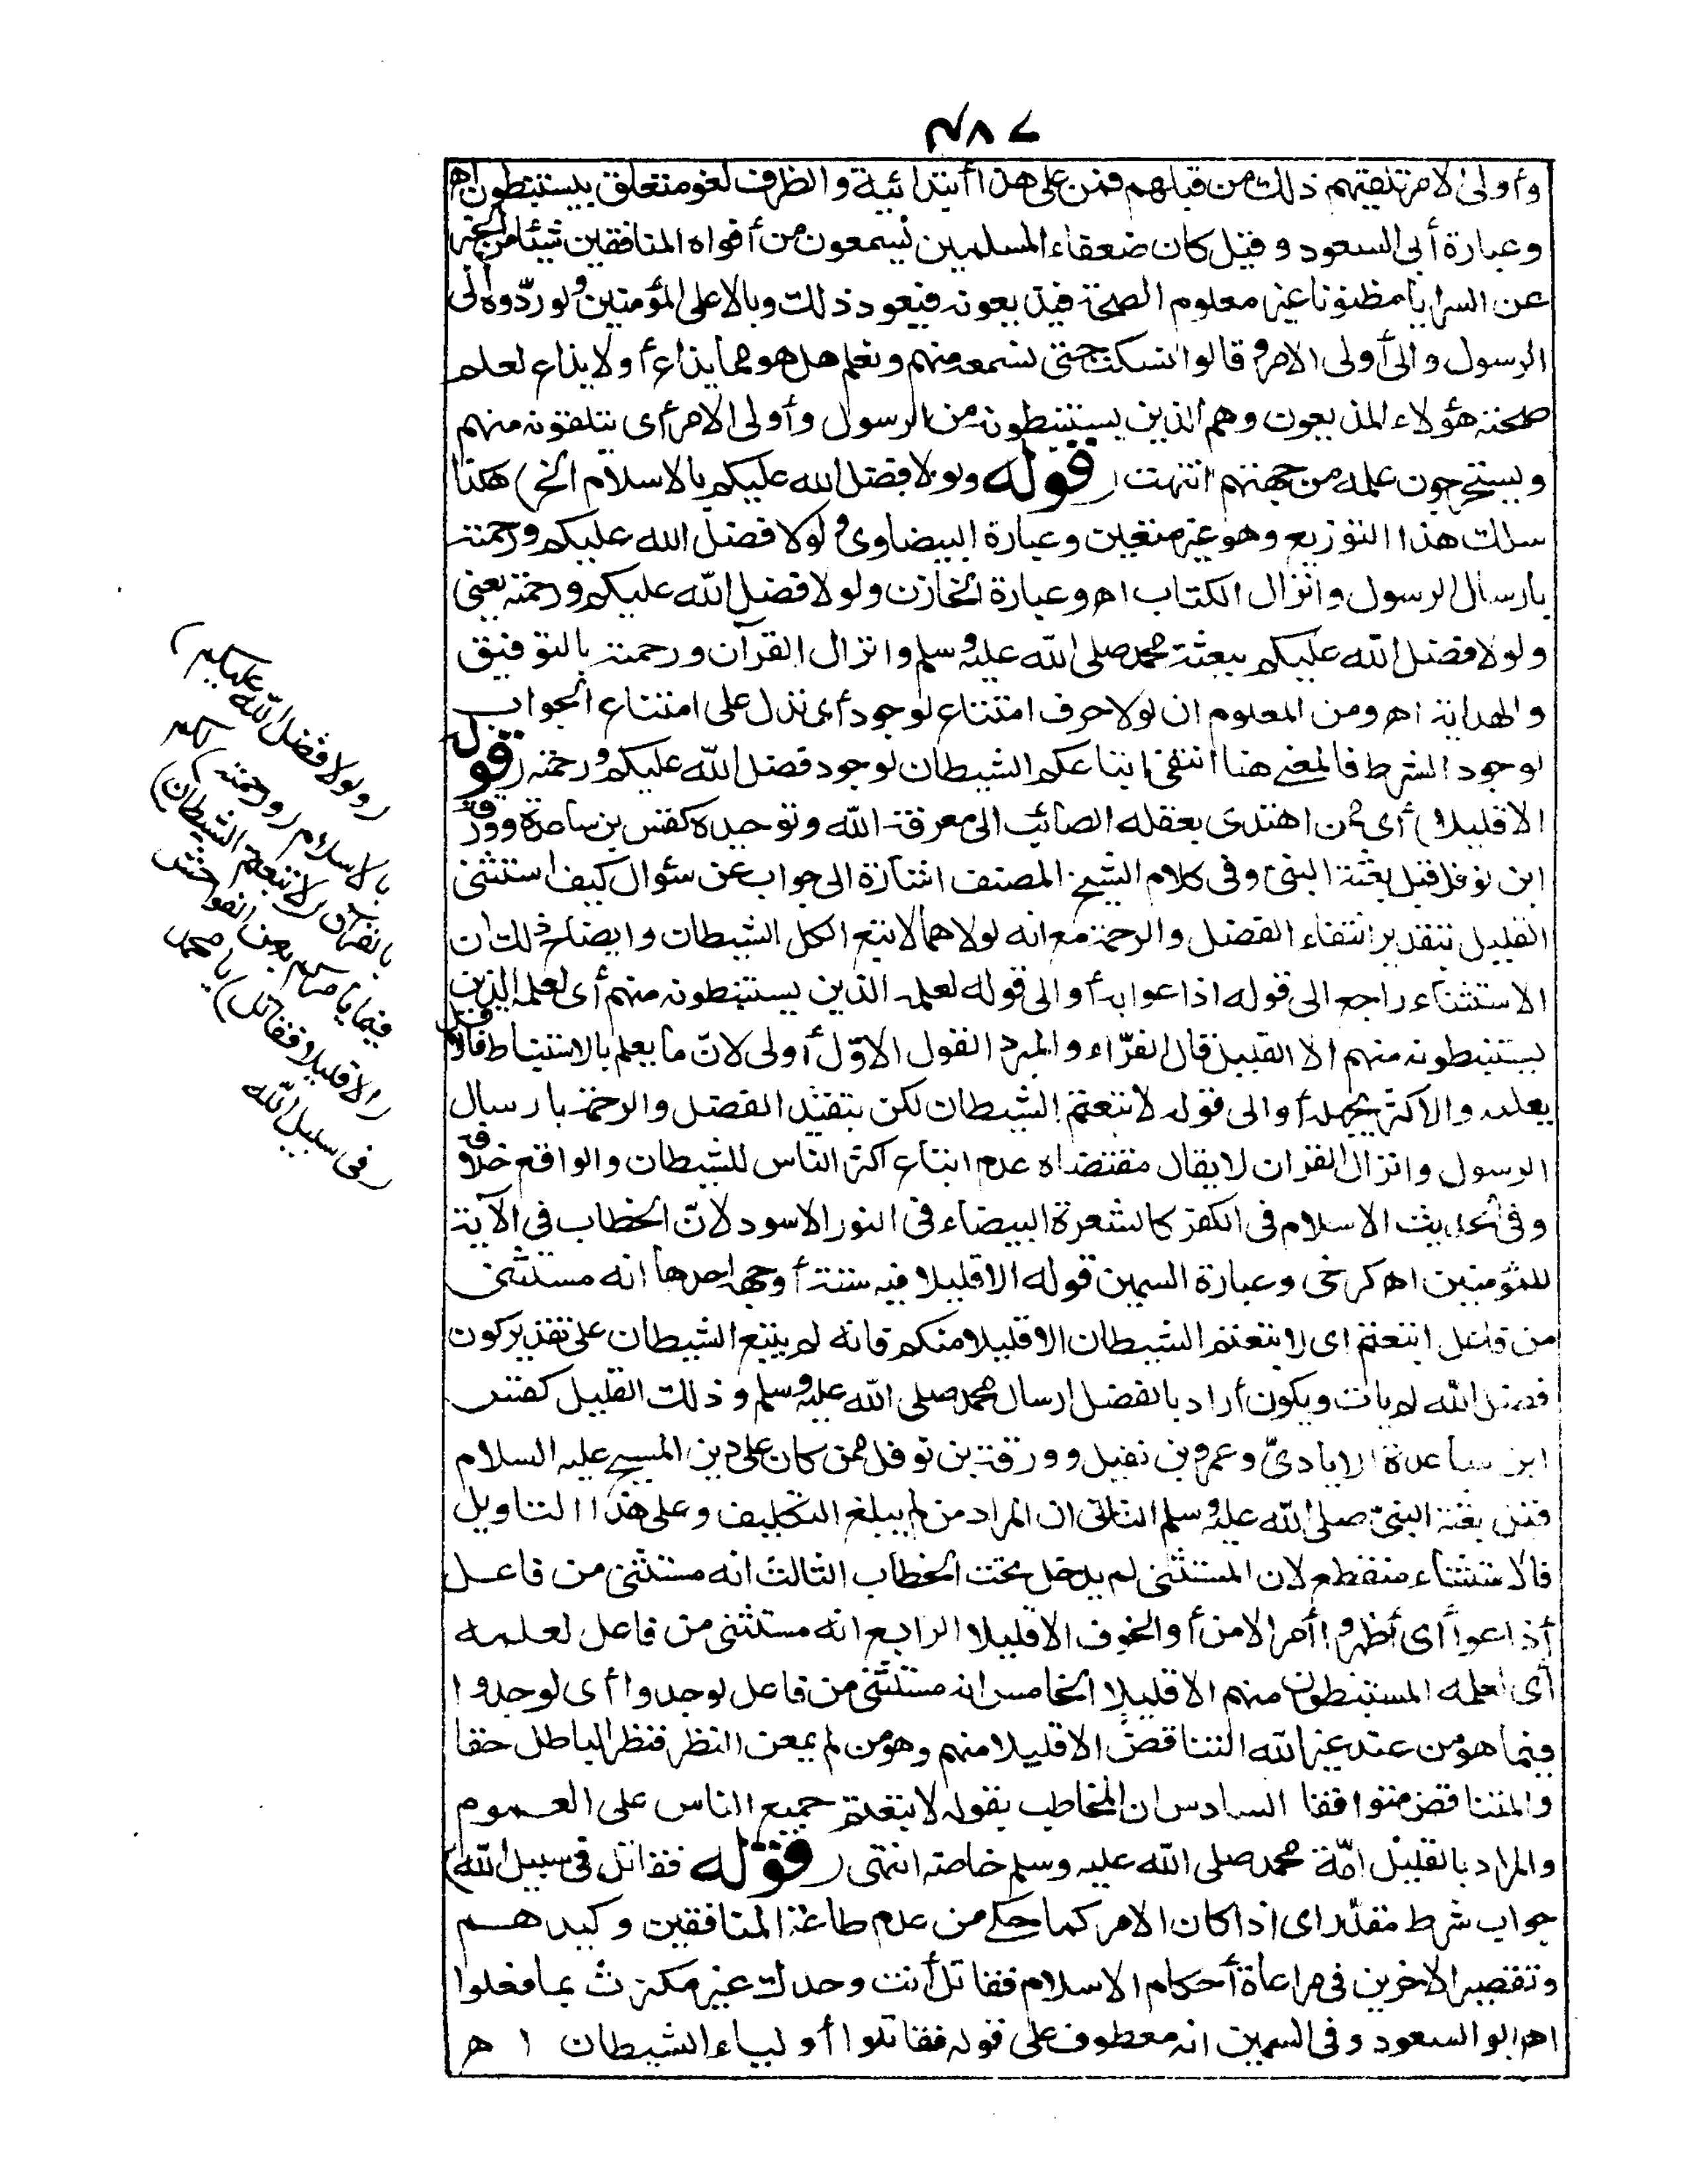 ٤٨٧
وأولى الامر تلقيهم ذلك من قبلهم فمن على هذا ابتدائية والظرف لغو متعلق بيستنبطون اه
وعبارة أبى السعود وقيل كان ضعفاء المسلمين يسمعون من أفواه المنافقين شيئا من الخبر
عن السرايا مظنونا غير معلوم الصحة فيذيعونه فيعود ذلك وبالا على المؤمنين ولو ردّوه الى
الرسول والى أولى الامر وقالوا نسكت حتى نسمعه منهم ونعلم هل هو مما يذاع أو لا يذاع لعلم
صحته هؤلاء المذيعون وهم الذين يستنبطونه من الرسول وأولى الامر أى يتلقونه منهم
ويستخرجون علمه من جهتهم انتهت (قوله ولولا فضل الله عليكم بالاسلام الخ) هكذا
سلك هذا التوزيع وهو غير متعين وعبارة البيضاوى ولولا فضل الله عليكم ورحمته
بارسال الرسول وانزال الكتاب اه وعبارة الخازن ولولا فضل الله عليكم ورحمته يعنى
ولولا فضل الله عليكم ببعثة محمد صلى الله عليه وسلم وانزال القرآن ورحمته بالتوفيق
والهداية اه ومن المعلوم ان لولا حرف امتناع لوجود أى تدل على امتناع الجواب
لوجود الشرط فالمعنى هنا انتفى اتباعكم الشيطان لوجود فضل الله عليكم ورحمته (قوله
الا قليلا) أى ممن اهتدى بعقله الصائب الى معرفة الله وتوحيده كقس بن ساعدة وورقة
ابن نوفل قبل بعثة النبى وفى كلام الشيخ المصنف اشارة الى جواب عن سؤال كيف استثنى
القليل بتقدير انتفاء الفضل والرحمة مع انه لولاهما لاتبع الكل الشيطان وايضاح ذلك ان
الاستثناء راجع الى قوله اذاعوا به أو الى قوله لعلمه الذين يستنبطونه منهم أى لعلمه الذين
يستنبطونه منهم الا القليل قال الفرّاء والمبرد القول الاوّل أولى لانّ ما يعلم بالاستنباط فالاقل
يعلمه والاكثر يجهله أو الى قوله لاتبعتم الشيطان لكن بتقييد الفضل والرحمة بارسال
الرسول وانزال القران لا يقال مقتضاه عدم اتباع أكثر الناس للشيطان والواقع خلافه
وفى الحديث الاسلام فى الكفر كالشعرة البيضاء فى الثور الاسود لانّ الخطاب فى الآية
للمؤمنين اه كرخى وعبارة السمين قوله الا قليلا فيه ستة أوجه احدها انه مستثنى
من فاعل اتبعتم اى لاتبعتم الشيطان الا قليلا منكم فانه لم يتبع الشيطان على تقدير كون
فضل الله لم يأت ويكون أراد بالفضل ارسال محمد صلى الله عليه وسلم وذلك القليل كقس
ابن ساعدة الايادىّ وعمرو بن نفيل وورقة بن نوفل ممن كان على دين المسيح عليه السلام
قبل بعثة النبىّ صلى الله عليه وسلم الثانى ان المراد من لم يبلغ التكليف وعلى هذا التاويل
فالاستثناء منقطع لان المستثنى لم يدخل تحت الخطاب الثالث انه مستثنى من فاعل
أذاعوا أى أظهروا أمر الامن أو الخوف الا قليلا الرابع انه مستثنى من فاعل لعلمه
أى لعلمه المستنبطون منهم الا قليلا الخامس انه مستثنى من فاعل لوجدوا أى لوجدوا
فيما هو من عند غير الله التناقض الا قليلا منهم وهو من لم يمعن النظر فنظر الباطل حقا
والمتناقض متوافقا السادس ان المخاطب بقوله لاتبعتم جميع الناس على العموم
والمراد بالقليل امّة محمد صلى الله عليه وسلم خاصة انتهى (قوله فقاتل فى سبيل الله)
جواب شرط مقدّر اى اذا كان الامر كما حكى من عدم طاعة المنافقين وكيدهم
وتقصير الاخرين فى مراعاة أحكام الاسلام فقاتل أنت وحدك غير مكترث بما فعلوا
اه ابو السعود وفى السمين انه معطوف على قوله فقاتلوا أولياء الشيطان اه
(ولولا فضل الله عليكم)
بالاسلام (ورحمته) لكم
بالقرآن (لاتبعتم الشيطان)
فيما يأمركم به من الفواحش
(الا قليلا فقاتل) يا محمد
(فى سبيل الله